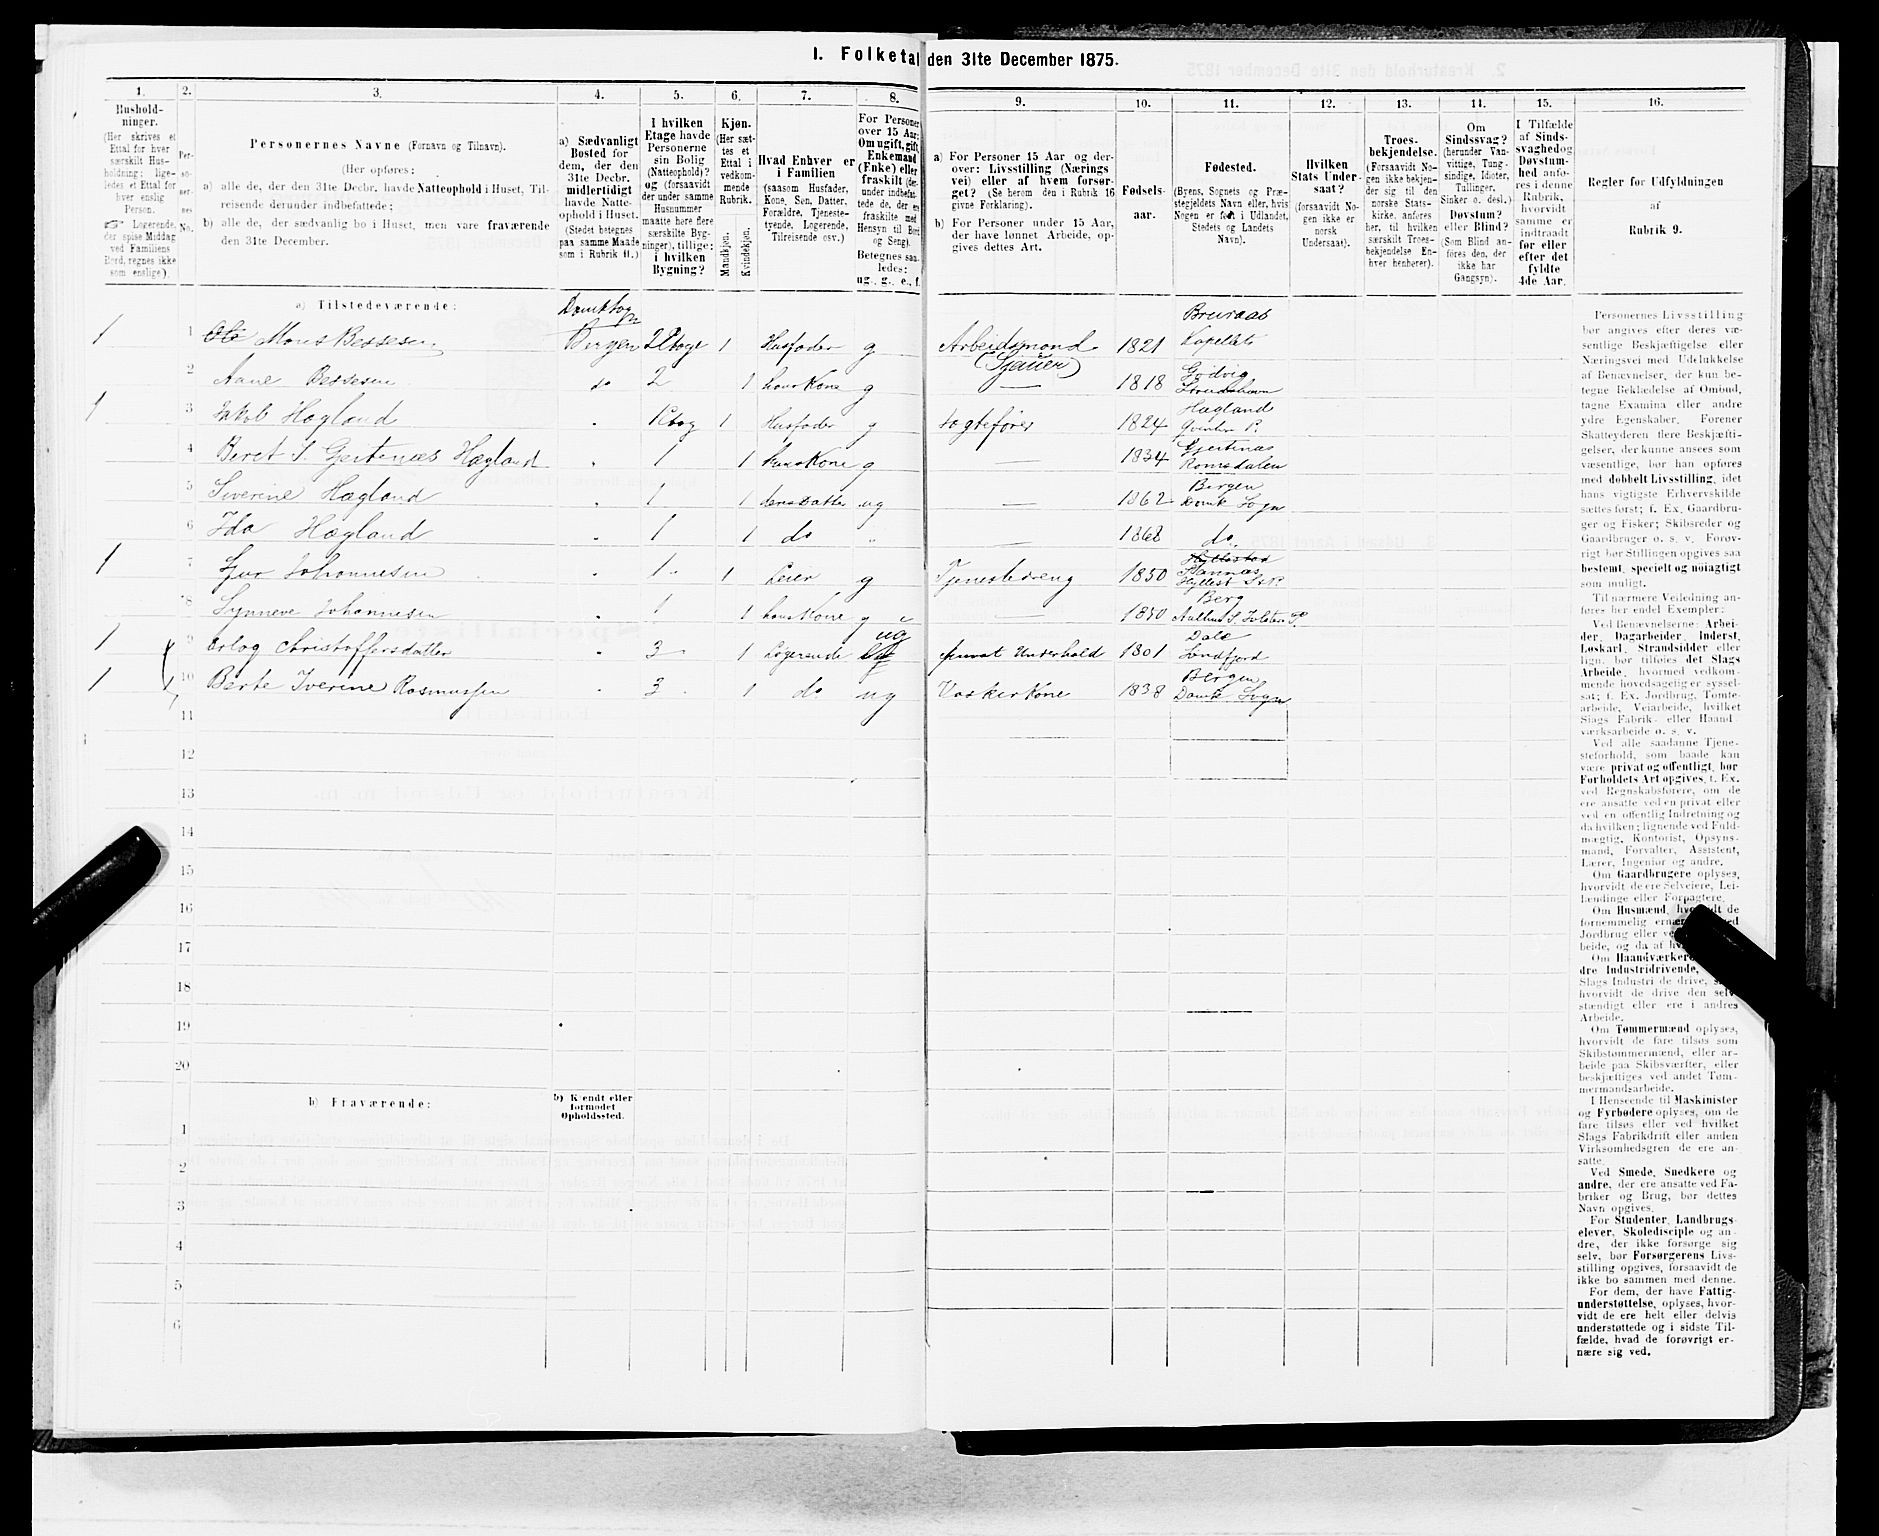 1. Folketal den 31te December 1875.
1. 2. 3. 4. 5. 6. 7. 8. 9. 10. 11. 12. 13. 14. 15. 16.
Hushold-
ninger.
(Her skrives et
Ettal for hver
særskilt Hus-
holdning; lige-
ledes et Ettal for
hver enslig
Person.
☞ Logerende,
der spise Middag
ved Familiens
Bord, regnes ikke
som enslige).
Per-
so-
ner-
nes
No.
Personernes Navne (Fornavn og Tilnavn).
(Her opføres:
a) alle de, der den 31te Decbr. havde Natteophold i Huset, Til-
reisende derunder indbefattede;
b) alle de, der sædvanlig bo i Huset, men vare fraværende
den 31te December.
a) Sædvanligt
Bosted for
dem, der den
31te Decbr.
midlertidigt
havde Natte-
ophold i Huset.
(Stedet betegnes
paa samme Maade
som i Rubrik 11.)
I hvilken
Etage havde
Personerne
sin Bolig
(Natteophold)?
og (forsaavidt
der under samme
Husnummer
maatte høre flere
særskilte Byg-
ninger), tillige:
i hvilken
Bygning?
Kjøn.
(Her sæt-
tes et
Ettal i
vedkom-
mende
Rubrik.
Mandkjøn.
Kvindekjøn.
Hvad Enhver er
i Familien
(saasom Husfader,
Kone, Søn, Datter,
Forældre, Tjeneste-
tyende, Logerende,
Tilreisende osv.)
For Personer
over 15 Aar:
Om ugift, gift,
Enkemand
(Enke) eller
fraskilt (der-
under indbefat-
tede de, der ere
fraskilte med
Hensyn til Bord
og Seng).
Betegnes saa-
ledes:
ug., g., e., f.
a) For Personer 15 Aar og der-
over: Livsstilling (Nærings-
vei) eller af hvem forsør-
get? (Se herom den i Rubrik 16
givne Forklaring).
b) For Personer under 15 Aar,
der have lønnet Arbeide, op-
gives dettes Art.
Fødsels-
aar.
Fødested.
(Byens, Sognets og Præ-
stegjeldets Navn eller, hvis
Nogen er født i Udlandet,
Stedets og Landets
Navn).
Hvilken
Stats Under-
saat?
(forsaavidt No-
gen ikke er
norsk
Undersaat).
Troes-
bekjendelse.
(Forsaavidt No-
gen ikke bekjen-
der sig til den
norske Stats-
kirke, anføres
her, til hvilken
særskilt Troes-
bekjendelse En-
hver henhører).
Om
Sindssvag?
(herunder Van-
vittige, Tung-
sindige, Idioter,
Tullinger,
Sinker o. desl.)
Døvstum?
eller Blind?
(Som Blind an-
føres den, der
ikke har
Gangsyn).
I Tilfælde
af Sinds-
svaghed og
Døvstum-
hed anfø-
res i denne
Rubrik,
hvorvidt
samme er
indtraadt
før eller
efter det
fyldte
4de Aar.
Regler for Udfyldningen
af
Rubrik 9.
a) Tilstedeværende: Domk Sogn Bruraas
1 1 Ole Mons Bessesen Bergen 2 Etage 1 Husfader g Arbeidsmand (Sjauer) 1821 Kapellets
2 Aane Bessesen do 2 1 hans Kone g — 1818 Godvig Strudshavn
1 3 Jakob Hægland " 1 Etag 1 Husfader g Jagtefører 1824 Hægland Qvinher. P.
4 Beret S. Gjertenæs Hægland " 1 1 hans Kone g — 1834 Gjertenæs Romsdalen
5 Severine Hægland " 1 1 deres Datter ug — 1862 Bergen Domk Sogn
6 Ida Hægland " 1 1 do " — 1868 do
1 7 Sjur Johannesen " 1 1 Leier g Tjenestedreng 1850 Hyllestad
8 Synneve Johannesen " 1 1 hans Kone g — 1850 Berg
1 9 Orlog Christoffersdatter " 3 1 Logerende ug privat Underhold 1801 Dale Søndfjord
1 10 Berte Iverine Rasmussen " 3 1 do ug Vaskerkone 1838 Bergen Domk Sogn
11
12
13
14
15
16
17
18
19
20
b) Fraværende:
b) Kjendt eller
formodet
Opholdssted.
1
2
3
4
5
6
Personernes Livsstilling
bør angives efter deres væ-
sentlige Beskjæftigelse eller
Næringsvei med Udelukkelse
af Benævnelser, der kun be-
tegne Beklædelse af Ombud,
tagne Examina eller andre
ydre Egenskaber. Forener
Skatteyderen flere Beskjæfti-
gelser, der kunne ansees som
væsentlige, bør han opføres
med dobbelt Livsstilling, idet
hans vigtigste Erhvervskilde
sættes først; f. Ex. Gaardbru-
ger og Fisker; Skibsreder og
Gaardbruger o. s. v. Forøv-
rigt bør Stillingen opgives saa
bestemt, specielt og nøiagtigt
som muligt.
Til nærmere Veiledning an-
føres her endel Exempler:
Ved Benævnelserne: Arbei-
der, Dagarbeider, Inderst,
Løskarl, Strandsidder eller
lign. bør tilføies det Slags
Arbeide, hvormed vedkom-
mende hovedsagelig er syssel-
sat; f. Ex. Jordbrug, Tomte-
arbeide, Veiarbeide, hvilket
Slags Fabrik- eller Haand-
værksarbeide o. s. v.
Ved alle saadanne Tjene-
steforhold, som baade kan
være privat og offentligt, bør
Forholdets Art opgives, f. Ex.
ved Regnskabsførere, om de
ere ansatte ved en privat eller
ved en offentlig Indretning og
da hvilken; lignende ved Fuld-
mægtig, Kontorist, Opsyns-
mand, Forvalter, Assistent,
Lærer, Ingeniør og andre.
Om Gaardbrugere oplyses,
hvorvidt de ere Selveiere, Lei-
lændinge eller Forpagtere.
Om Husmænd, hvorvidt de
fornemmelig
Jordbrug eller
beide, og da af
Om Haandværkere
dre Industridrivende,
Slags Industri de drive,
hvorvidt de drive den selv-
stændigt eller ere i andres
Arbeide.
Om Tømmermænd oplyses,
hvorvidt de fare tilsøs som
Skibstømmermænd, eller ar-
beide paa Skibsværfter, eller
beskjæftiges ved andet Tøm-
mermandsarbeide.
I Henseende til Maskinister
og Fyrbødere oplyses, om de
fare tilsøs eller ved hvilket
Slags Fabrikdrift eller anden
Virksomhedsgren de ere an-
satte.
Ved Smede, Snedkere og
andre, der ere ansatte ved Fa-
briker og Brug, bør dettes
Navn opgives.
For Studenter, Landbrugs-
elever, Skoledisciple og an-
dre, der ikke forsørge sig
selv, bør Forsørgerens Livs-
stilling opgives, forsaavidt de
ikke bo sammen med denne.
For dem, der have Fattig-
understøttelse, oplyses, hvor-
vidt de ere helt eller delvis
understøttede og i sidste Til-
fælde, hvad de forøvrigt er-
nære sig ved.